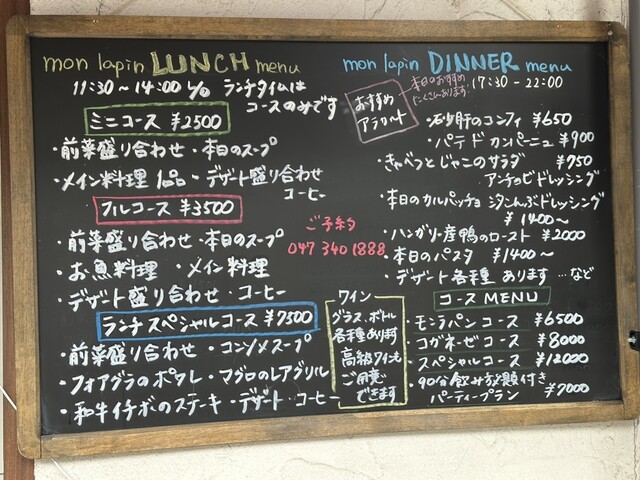 mon lapin LUNCH menu
11:30~14:00 L/O ランチタイムは
コースのみです
ミニコース ¥2500
・前菜盛り合わせ ・本日のスープ
・メイン料理 1品 ・デザート盛り合わせ
コーヒー
フルコース ¥3500
・前菜盛り合わせ ・本日のスープ
・お魚料理 ・メイン料理
・デザート盛り合わせ ・コーヒー
ランチスペシャルコース ¥7500
・前菜盛り合わせ ・コンソメスープ
・フォアグラのポワレ ・マグロのレアグリル
・和牛イチボのステーキ ・デザート ・コーヒー
ご予約
047 340 1888
ワイン
グラス、ボトル
各種あります
高級ワインも
ご用意
できます
mon lapin DINNER menu
本日のおすすめ
たくさんあります
17:30-22:00
おすすめ
アラカルト
・砂肝のコンフィ ¥650
・パテ ド カンパーニュ ¥900
・きゃべつとじゃこのサラダ ¥750
アンチョビドレッシング
・本日のカルパッチョ シタこんぶドレッシング
¥1400~
・ハンガリー産鴨のロースト ¥2000
・本日のパスタ ¥1400~
・デザート各種 あります …など
コース MENU
・モンラパンコース ¥6500
・コガネーゼコース ¥8000
・スペシャルコース ¥12000
・90分飲み放題付き
パーティープラン ¥7000